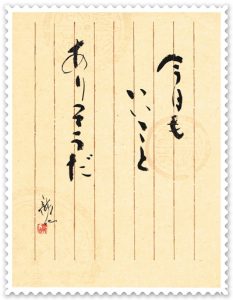 今日も
いいこと
ありそうだ